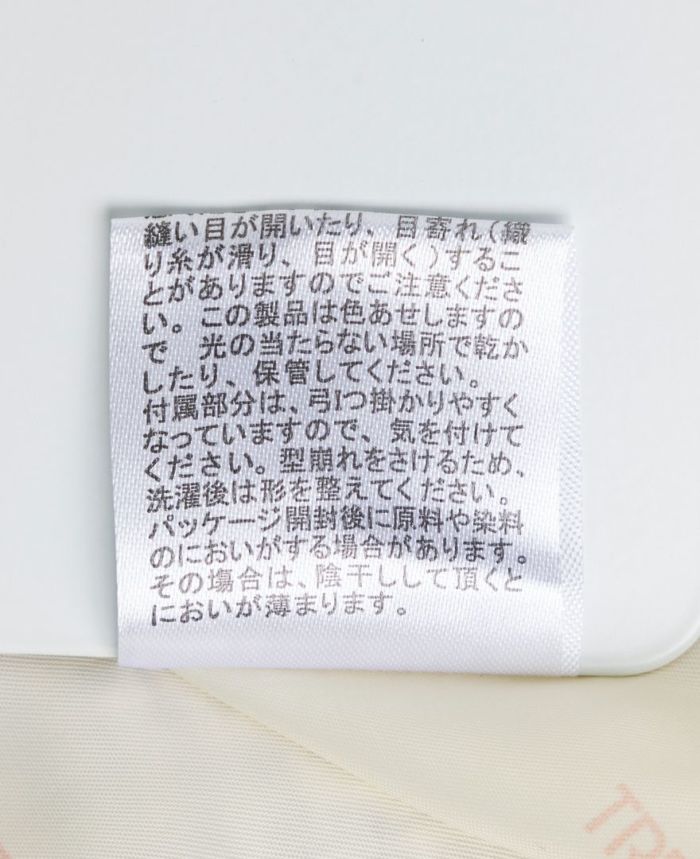 縫い目が開いたり、目寄れ(織
り糸が滑り、目が開く)するこ
とがありますのでご注意くださ
い。この製品は色あせしますの
で 光の当たらない場所で乾か
したり、保管してください。
付属部分は、弓Iつ掛かりやすく
なっていますので、気を付けて
ください。型崩れをさけるため、
洗濯後は形を整えてください。
パッケージ開封後に原料や染料
のにおいがする場合があります。
その塲合は、陰干しして頂くと
においが薄まります。